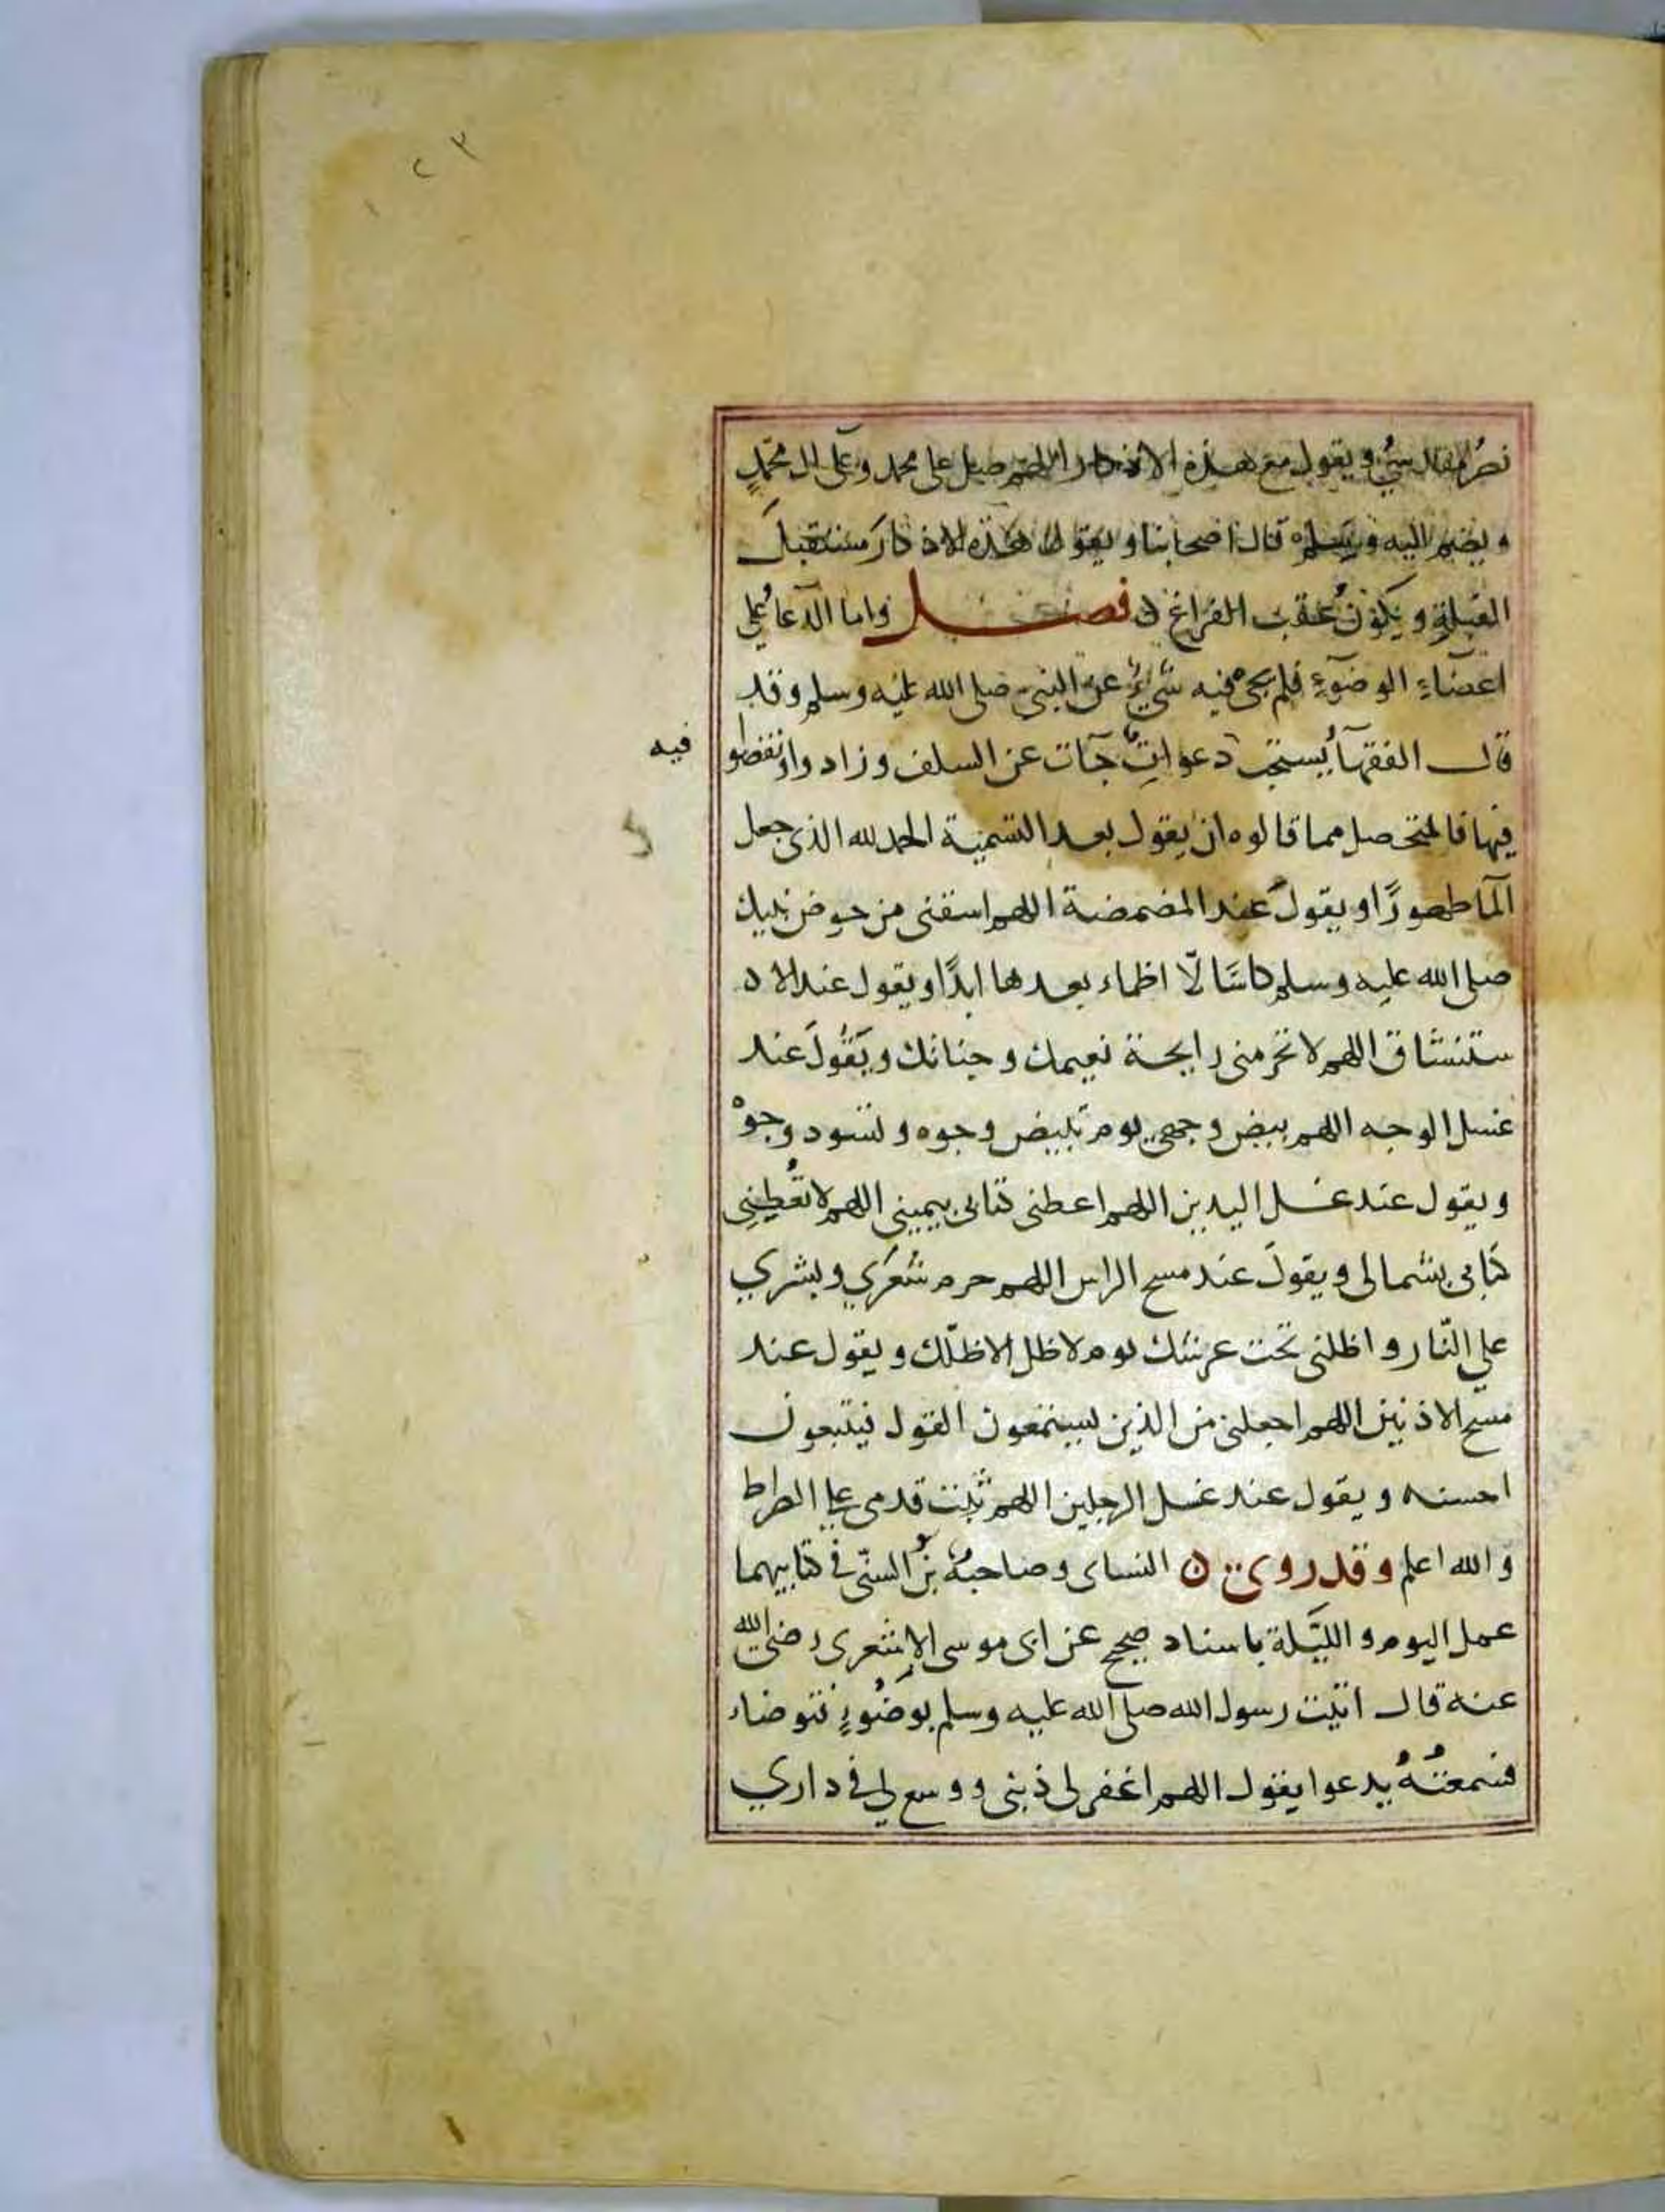 نصر المقدسي ويقول مع هذه الاذكار اللهم صل على محمد وعلى ال محمدٍ
ويضم اليه وسلم قال اصحابنا ويقول هذه الاذكارَ مستقبلَ
القبلةِ ويكونُ عقب الفراغ ن فصل واما الدعاءُ على
اعضاءِ الوضوءِ فلم يجئ فيه شيءٌ عن النبي صلى الله عليه وسلم وقد
قال الفقهاءُ يستحب دعواتٌ جآت عن السلف وزاد واونقضوا
فيه
فيها فالمتحصل مما قالوه ان يقول بعد التسمية الحمد لله الذي جعل
المآ طهورًا ويقولَ عند المضمضة اللهم اسقنى من حوض نبيك
صلى الله عليه وسلم كاسًا لّا اظماء بعدها ابدًا ويقول عند الا
ستنشاق اللهم لا تحرمنى رايحة نعيمك وجنانك ويَقُولَ عند
غسل الوجه اللهم بيض وجهي يوم تبيض وجوه وتسود وجوهْ
ويقول عند غسل اليدين اللهم اعطنى كتابى بيمينى اللهم لا تُعْطِينِى
كتابى بشمالى ويقولَ عند مسح الراس اللهم حرم شَعَري وبشري
على النّار واظلنى تحت عرشك يوم لا ظل الا ظلّك ويقول عند
مسح الاذنين اللهم اجعلنى من الذين يستمعون القول فيتبعون
احسنه ويقول عند غسل الرجلين اللهم ثبت قدمى على الصراط
والله اعلم وقد روى ن النساى وصاحبهُ بنُ السنّى في كتابيهما
عمل اليوم والليَلة باسناد صحيح عن ابى موسى الاشعرى رضى الله
عنه قال اتيت رسول الله صلى الله عليه وسلم بوَضُوءٍ فتوضاء
فسمعتُهُ يدعوا يقول اللهم اغفر لى ذنبى ووسع لي في داري